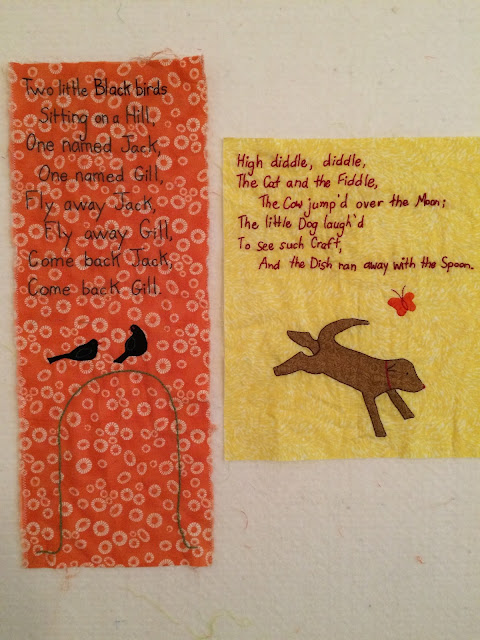 Two little Black birds
Sitting on a Hill,
One named Jack,
One named Gill,
Fly away Jack,
Fly away Gill,
Come back Jack,
Come back Gill.
High diddle, diddle,
The Cat and the Fiddle,
The Cow jump'd over the Moon;
The little Dog laugh'd
To see such Craft,
And the Dish ran away with the Spoon.